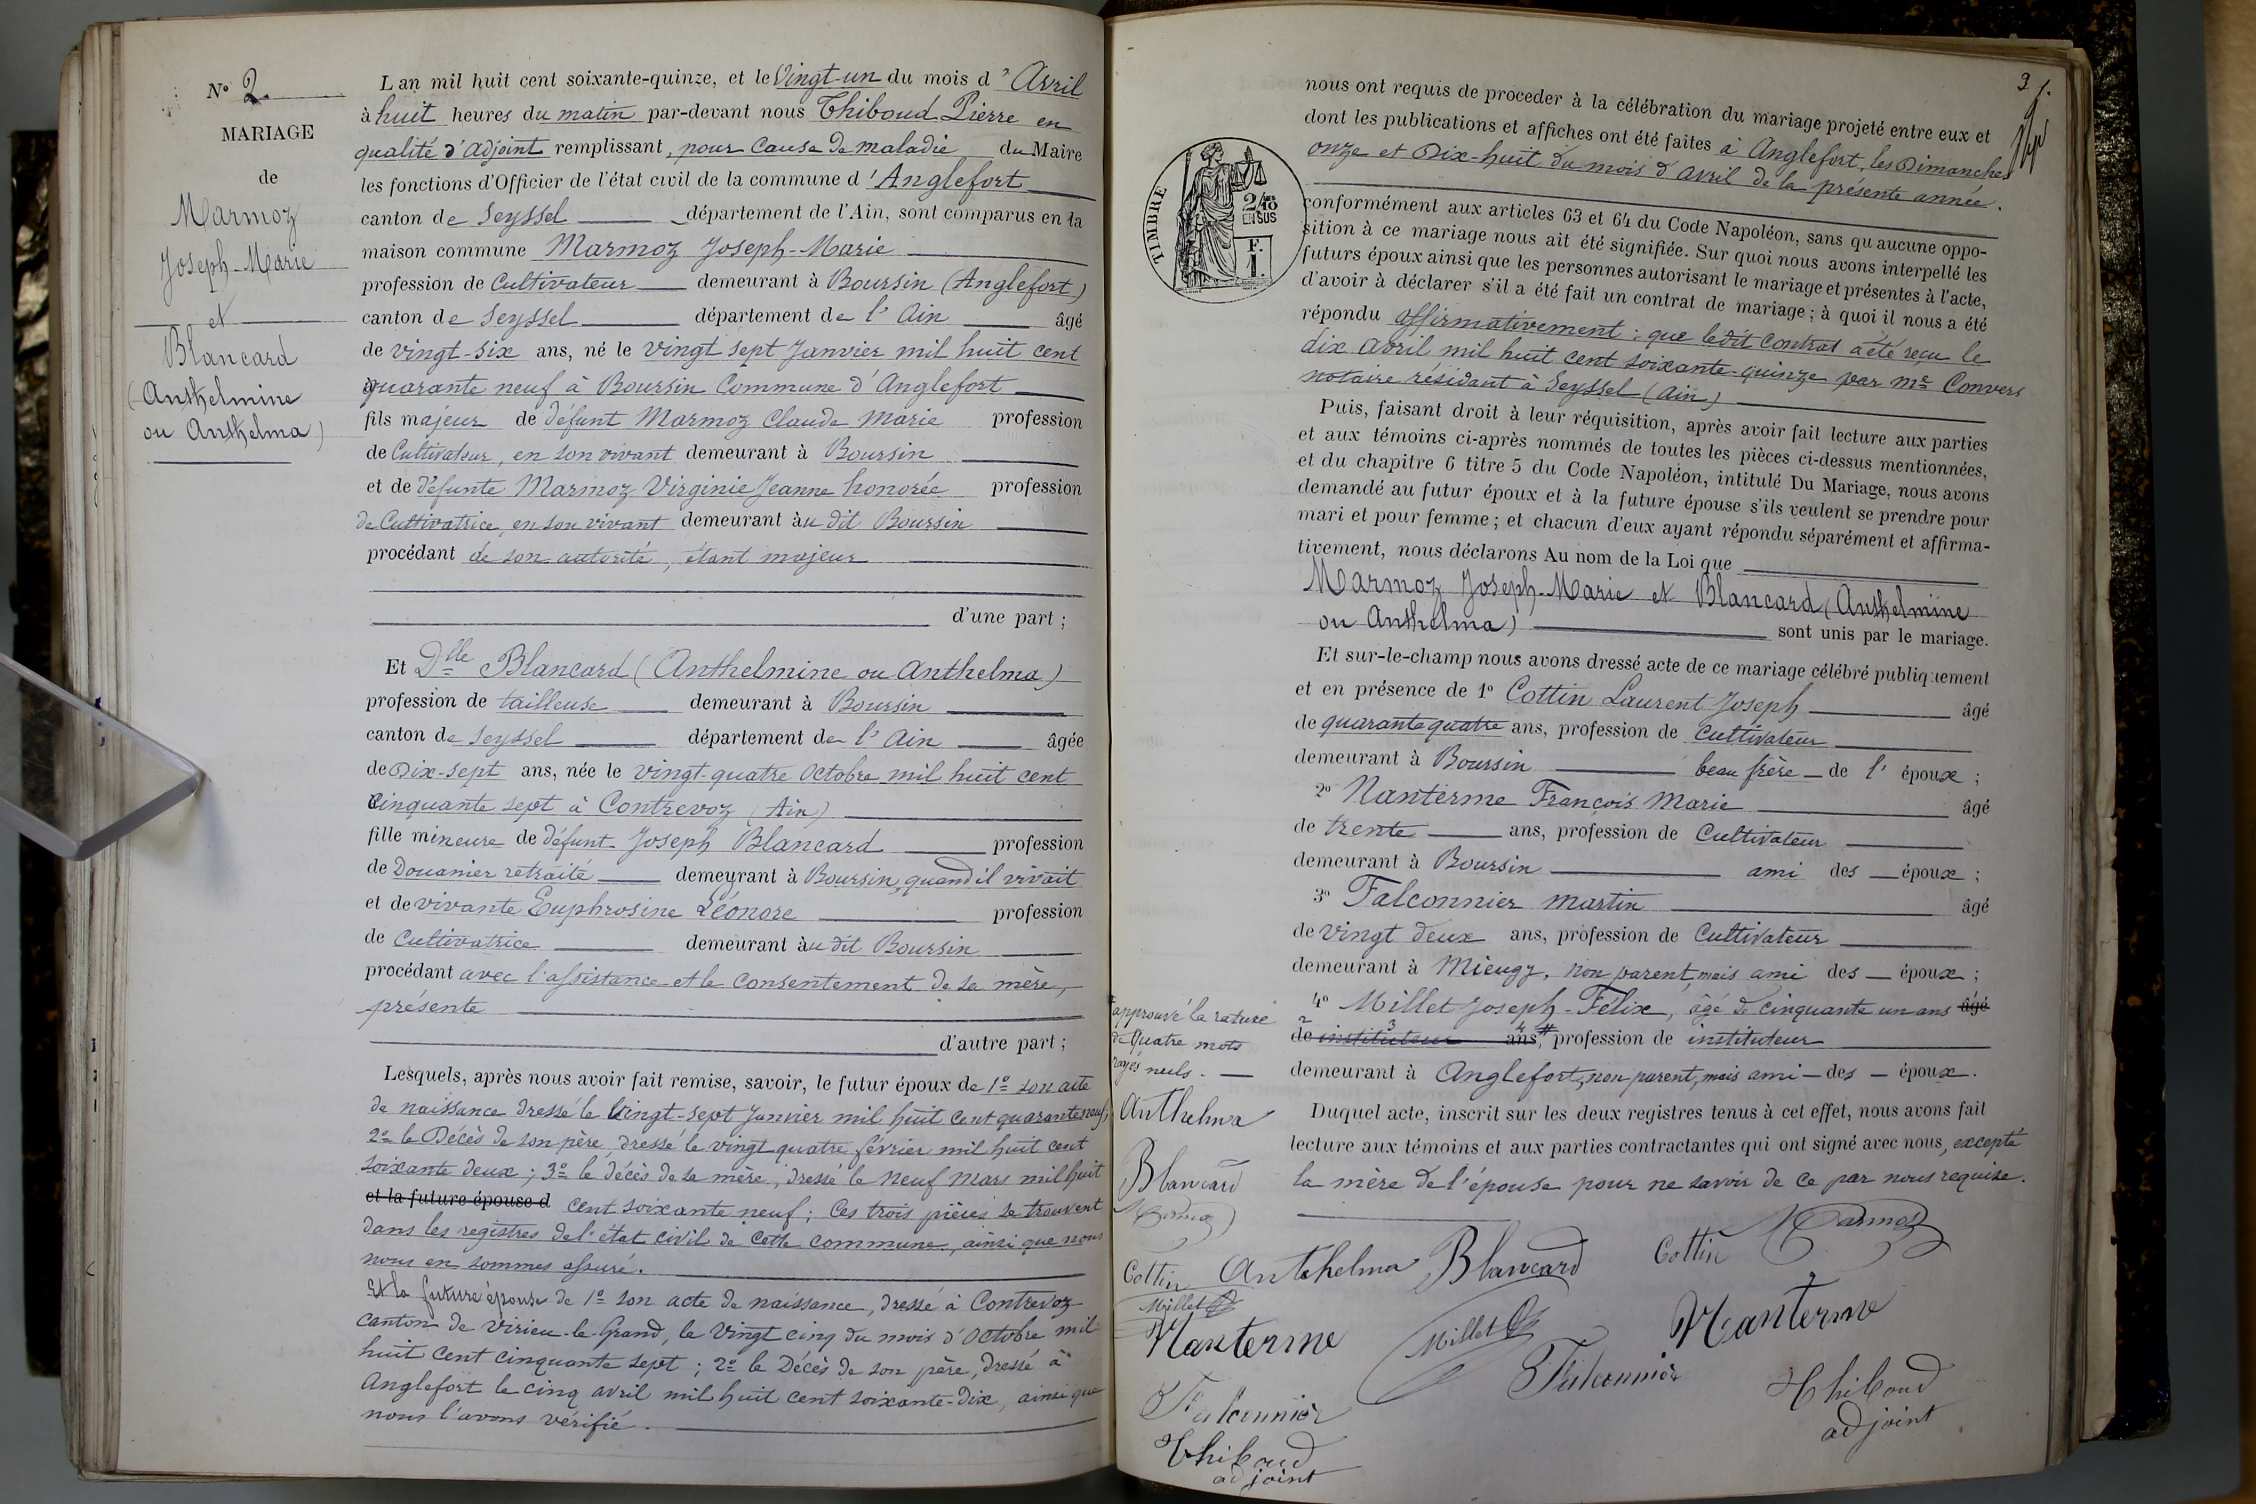 N° 2.
MARIAGE
de
Marmoz
Joseph-Marie
et
Blancard
(Anthelmine
ou Anthelma)
L'an mil huit cent soixante-quinze, et le Vingt-un du mois d'Avril
à huit heures du matin par-devant nous Thiboud Pierre en
qualité d'adjoint remplissant, pour cause de maladie du Maire
les fonctions d'Officier de l'état civil de la commune d'Anglefort
canton de Seyssel département de l'Ain, sont comparus en la
maison commune Marmoz Joseph-Marie
profession de Cultivateur demeurant à Boursin (Anglefort)
canton de Seyssel département de l'Ain âgé
de vingt-six ans, né le vingt sept Janvier mil huit cent
quarante neuf à Boursin Commune d'Anglefort
fils majeur de défunt Marmoz Claude Marie profession
de Cultivateur, en son vivant demeurant à Boursin
et de défunte Marmoz Virginie Jeanne honorée profession
de Cultivatrice, en son vivant demeurant àu dit Boursin
procédant de son autorité, étant majeur
d'une part ;
Et Dlle Blancard (Anthelmine ou Anthelma)
profession de tailleuse demeurant à Boursin
canton de Seyssel département de l'Ain âgée
de Dix-sept ans, née le vingt-quatre Octobre mil huit cent
cinquante sept à Contrevoz (Ain)
fille mineure de défunt Joseph Blancard profession
de Douanier retraité demeurant à Boursin, quand il vivait
et de vivante Euphrosine Léonore profession
de Cultivatrice demeurant àu dit Boursin
procédant avec l'assistance et le consentement de sa mère,
présente
d'autre part ;
Lesquels, après nous avoir fait remise, savoir, le futur époux de 1° son acte
de naissance dressé le vingt-sept Janvier mil huit cent quarante neuf;
2° le Décès de son père, dressé le vingt quatre février mil huit cent
soixante deux ; 3° le décès de sa mère, dressé le neuf Mars mil huit
et la future épouse d cent soixante neuf ; Ces trois pièces se trouvent
dans les registres de l'état civil de cette commune, ainsi que nous
nous en sommes assuré.
Et la future épouse de 1° son acte de naissance, dressé à Contrevoz
canton de Virieu-le-Grand, le Vingt cinq du mois d'Octobre mil
huit cent cinquante sept ; 2° le Décès de son père, dressé à
Anglefort le cinq avril mil huit cent soixante-dix, ainsi que
nous l'avons vérifié.
TIMBRE
2/10
EN SUS
F.
1.
nous ont requis de proceder à la célébration du mariage projeté entre eux et
dont les publications et affiches ont été faites à Anglefort, les Dimanches
onze et Dix-huit du mois d'avril de la présente année.
conformément aux articles 63 et 64 du Code Napoléon, sans qu'aucune oppo-
sition à ce mariage nous ait été signifiée. Sur quoi nous avons interpellé les
futurs époux ainsi que les personnes autorisant le mariage et présentes à l'acte,
d'avoir à déclarer s'il a été fait un contrat de mariage ; à quoi il nous a été
répondu affirmativement : que ledit Contrat a été reçu le
dix avril mil huit cent soixante-quinze par Me Convers
notaire résidant à Seyssel (Ain)
Puis, faisant droit à leur réquisition, après avoir fait lecture aux parties
et aux témoins ci-après nommés de toutes les pièces ci-dessus mentionnées,
et du chapitre 6 titre 5 du Code Napoléon, intitulé Du Mariage, nous avons
demandé au futur époux et à la future épouse s'ils veulent se prendre pour
mari et pour femme ; et chacun d'eux ayant répondu séparément et affirma-
tivement, nous déclarons Au nom de la Loi que
Marmoz Joseph-Marie et Blancard (Anthelmine
ou Anthelma) sont unis par le mariage.
Et sur-le-champ nous avons dressé acte de ce mariage célébré publiquement
et en présence de 1° Cottin Laurent Joseph âgé
de quarante quatre ans, profession de Cultivateur
demeurant à Boursin beau frère de l'époux ;
2° Nanterme François Marie âgé
de trente ans, profession de Cultivateur
demeurant à Boursin ami des époux ;
3° Falconnier Martin âgé
de vingt deux ans, profession de Cultivateur
demeurant à Mieugy, non parent, mais ami des époux ;
4° Millet Joseph-Félix, âgé de cinquante un ans âgé
de instituteur ans, profession de instituteur
demeurant à Anglefort, non parent, mais ami des époux.
Duquel acte, inscrit sur les deux registres tenus à cet effet, nous avons fait
lecture aux témoins et aux parties contractantes qui ont signé avec nous, excepté
la mère de l'épouse pour ne savoir de ce par nous requise.
approuvé la rature
de quatre mots
rayés nuls.
Anthelma
Blancard
Marmoz
Cottin Anthelma Blancard Cottin Marmoz
Millet
Nanterme Millet Nanterme
Falconnier Falconnier
Thiboud Thiboud
adjoint adjoint